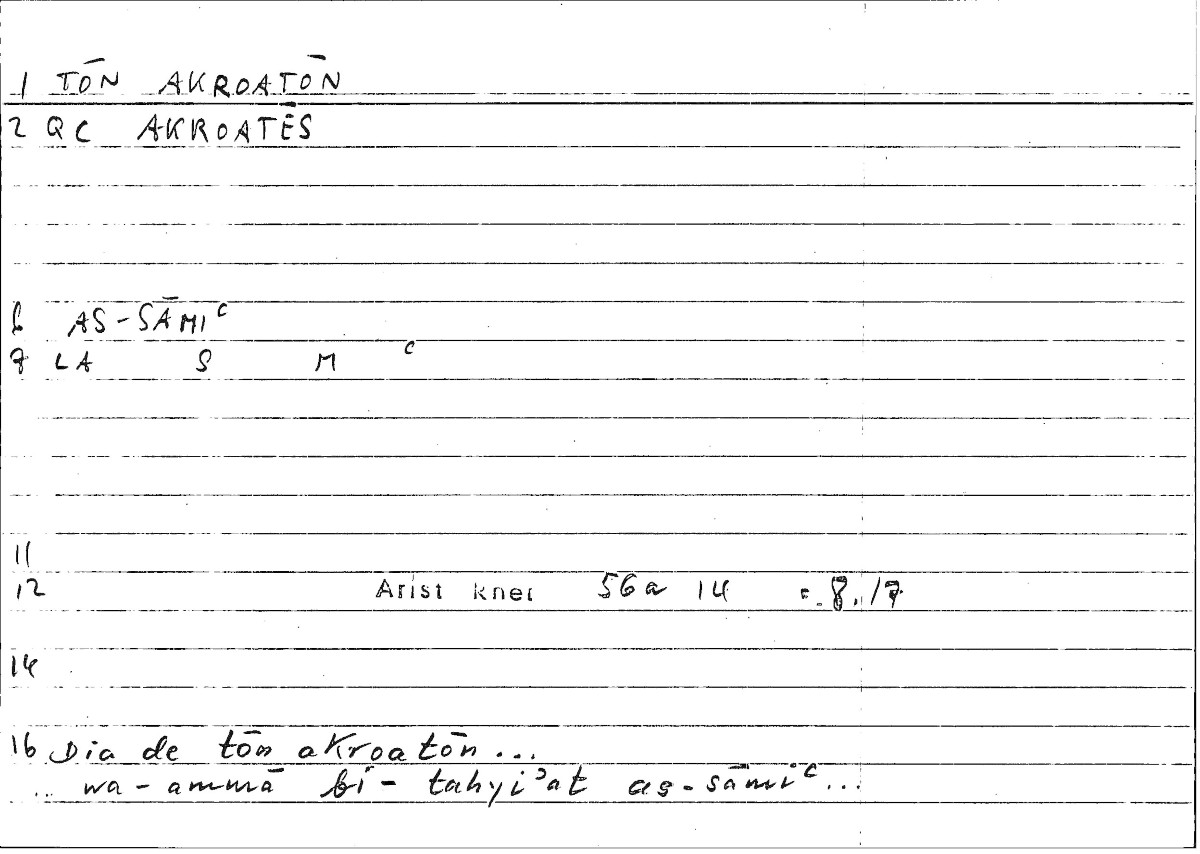 1 TŌN AKROATŌN
2 QC AKROATĒS
6 AS-SĀMIᶜ
7 LA S M ᶜ
11
12 Arist 56a 14 = 8, 17
14
16 Dia de tōn akroatōn...
.. wa-ammā bi-tahyiʾat as-sāmiᶜ...